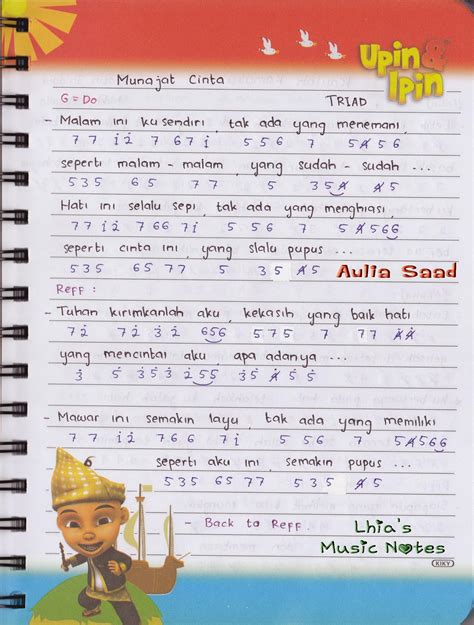 Upin & Ipin
Munajat Cinta
G = Do
TRIAD
- Malam ini ku sendiri, tak ada yang menemani,
7 7 i̇ 2̇ 7 6 7 i̇ 5 5 6 7 5 4̸ 5 6
seperti malam - malam, yang sudah - sudah ...
5 3 5 6 5 7 7 5 3 5 4̸ 4̸ 5
Hati ini selalu sepi, tak ada yang menghiasi,
7 7 i̇ 2̇ 7 6 6 7 i̇ 5 5 6 7 5 4̸ 5 6 6
seperti cinta ini, yang slalu pupus ...
5 3 5 6 5 7 7 5 3 5 4̸ 5
Aulia Saad
Reff :
- Tuhan kirimkanlah aku, kekasih yang baik hati
7 2̇ 7 2̇ 3̇ 2̇ 6 5 6 5 7 5 7 7 7 4̸̇ 4̸̇
yang mencintai aku apa adanya ...
3̇ 5̇ 5̇ 3̇ 5̇ 2̇ 5̇ 5̇ 3̇ 5̇ 4̸̇ 4̸̇ 5̇
- Mawar ini semakin layu, tak ada yang memiliki
7 7 i̇ 2̇ 7 6 6 7 i̇ 5 5 6 7 5 4̸ 5 6 6
6 seperti aku ini, semakin pupus ...
5 3 5 6 5 7 7 5 3 5 4̸ 5
- Back to Reff.
Lhia's
Music Notes
KIKY